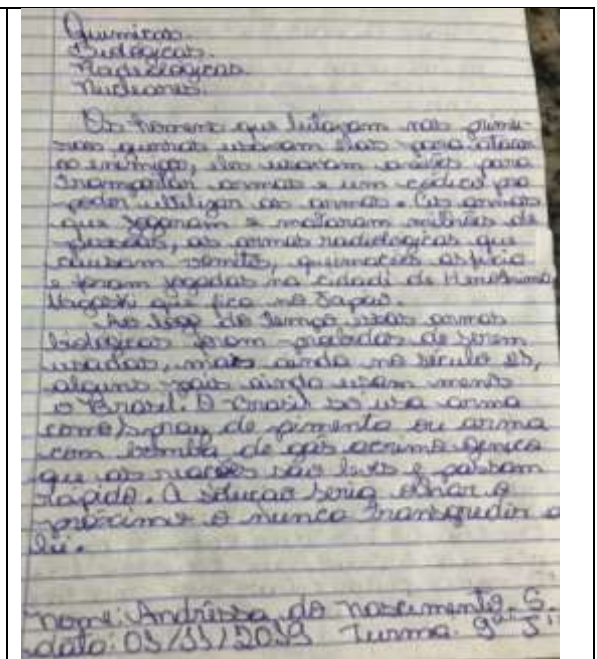 Químicas.
Biológicas.
Radiológicas.
Nucleares.
Os homens que lutavam nas primei-
ras guerras usavam elas para atacar
os inimigos, eles usavam aviões para
transportar armas e um código pra
poder ultilizar as armas. As armas
que jogaram e mataram milhões de
pessoas, as armas radiologicas que
causam vômito, queimações asfixia
e foram jogadas na cidadi de Hiroshima
Nagasaki que fica no Japão.
Ao logo do tempo essas armas
biológicas foram proibidas de serem
usadas, mais ainda no século
alguns país ainda usam menos
o Brasil. O Brasil só usa arma
como spray de pimenta ou arma
com bomba de gás
que as reações são leves e passam
rápido. A solução seria olhar o
próximo e nunca a
lei.
nome: Andressa do nascimento. S.
data: Turma: 9°